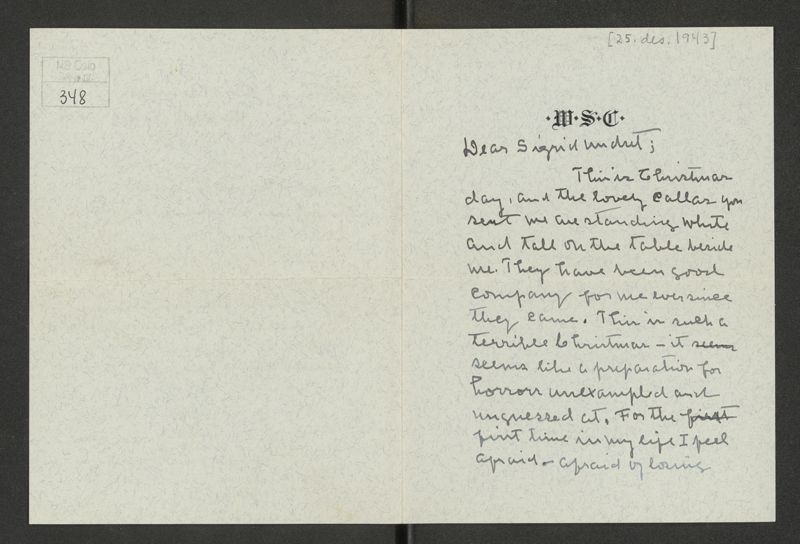 [25. des. 1943]
348
·W·S·C·
Dear Sigrid Undset;
This is Christmas
day, and the lovely callas you
sent me are standing white
and tall on the table beside
me. They have been good
company for me ever since
they came. This is such a
terrible Christmas - it seems
seems like a preparation for
horrors unexampled and
unguessed at. For the first
first time in my life I feel
afraid - afraid of losing